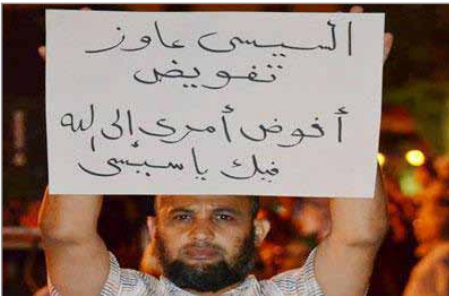 السيسى عاوز
تفويض
أفوض أمرى إلى الله
فيك يا سيسى